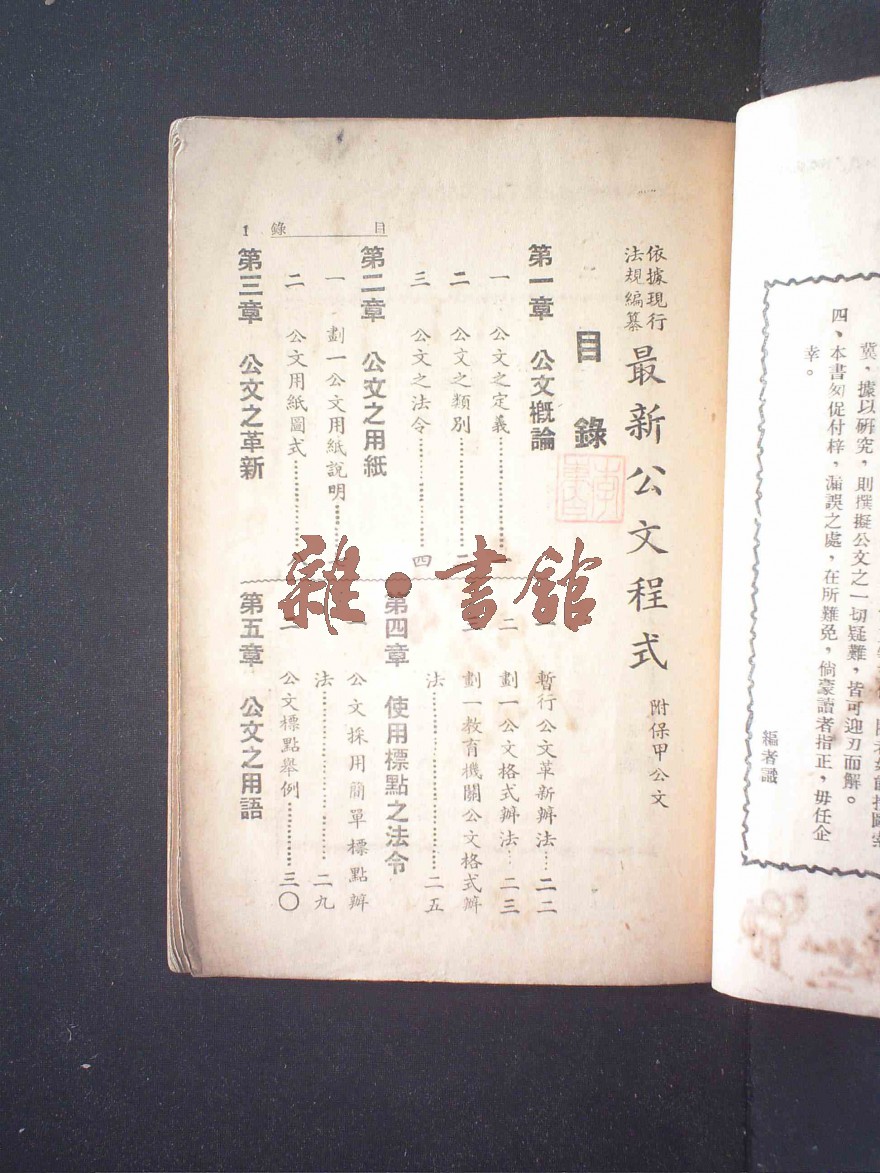 冀，據以研究，則撰擬公文之一切疑難，皆可迎刃而解。
四、本書匆促付梓，漏誤之處，在所難免，倘蒙讀者指正，毋任企
幸。
編者識
依據現行
法規編纂
最新公文程式
附保甲公文
目錄
第一章 公文概論
一 公文之定義
二 公文之類別
三 公文之法令……四
第二章 公文之用紙
一 劃一公文用紙說明
二 公文用紙圖式
第三章 公文之革新
暫行公文革新辦法…二二
二 劃一公文格式辦法…二三
劃一教育機關公文格式辦
法……二五
第四章 使用標點之法令
公文採用簡單標點辦
法……二九
公文標點舉例……三〇
第五章 公文之用語
目錄 1
雜·書館